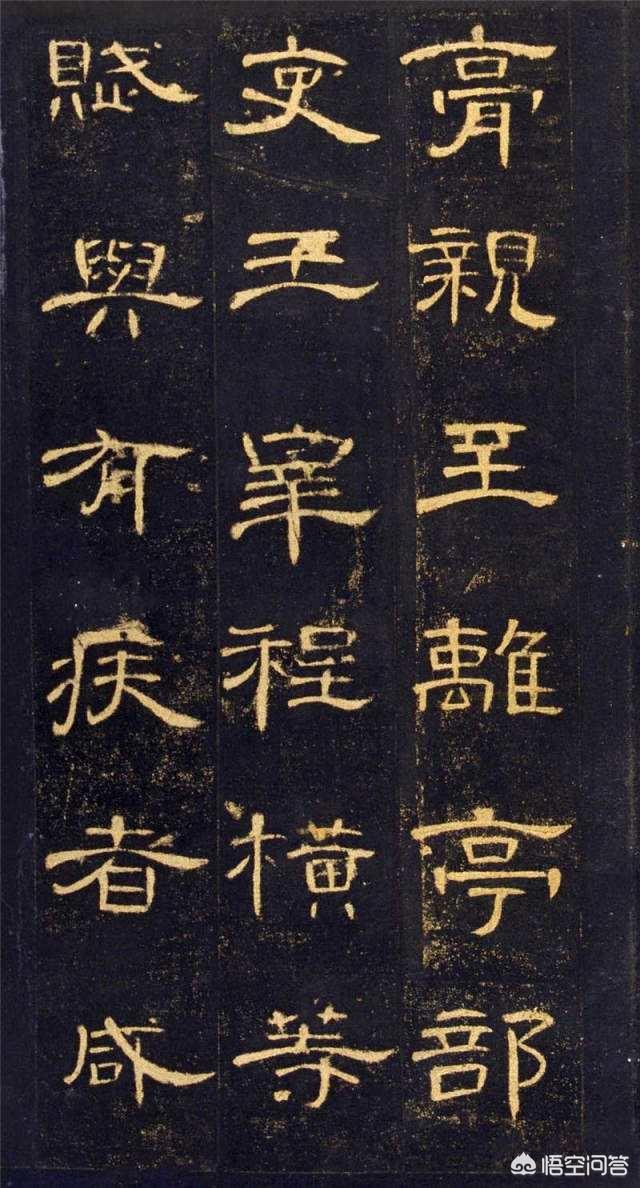 膏親至離亭部
吏王宰程橫等
賦與有疾者咸
悟空问答